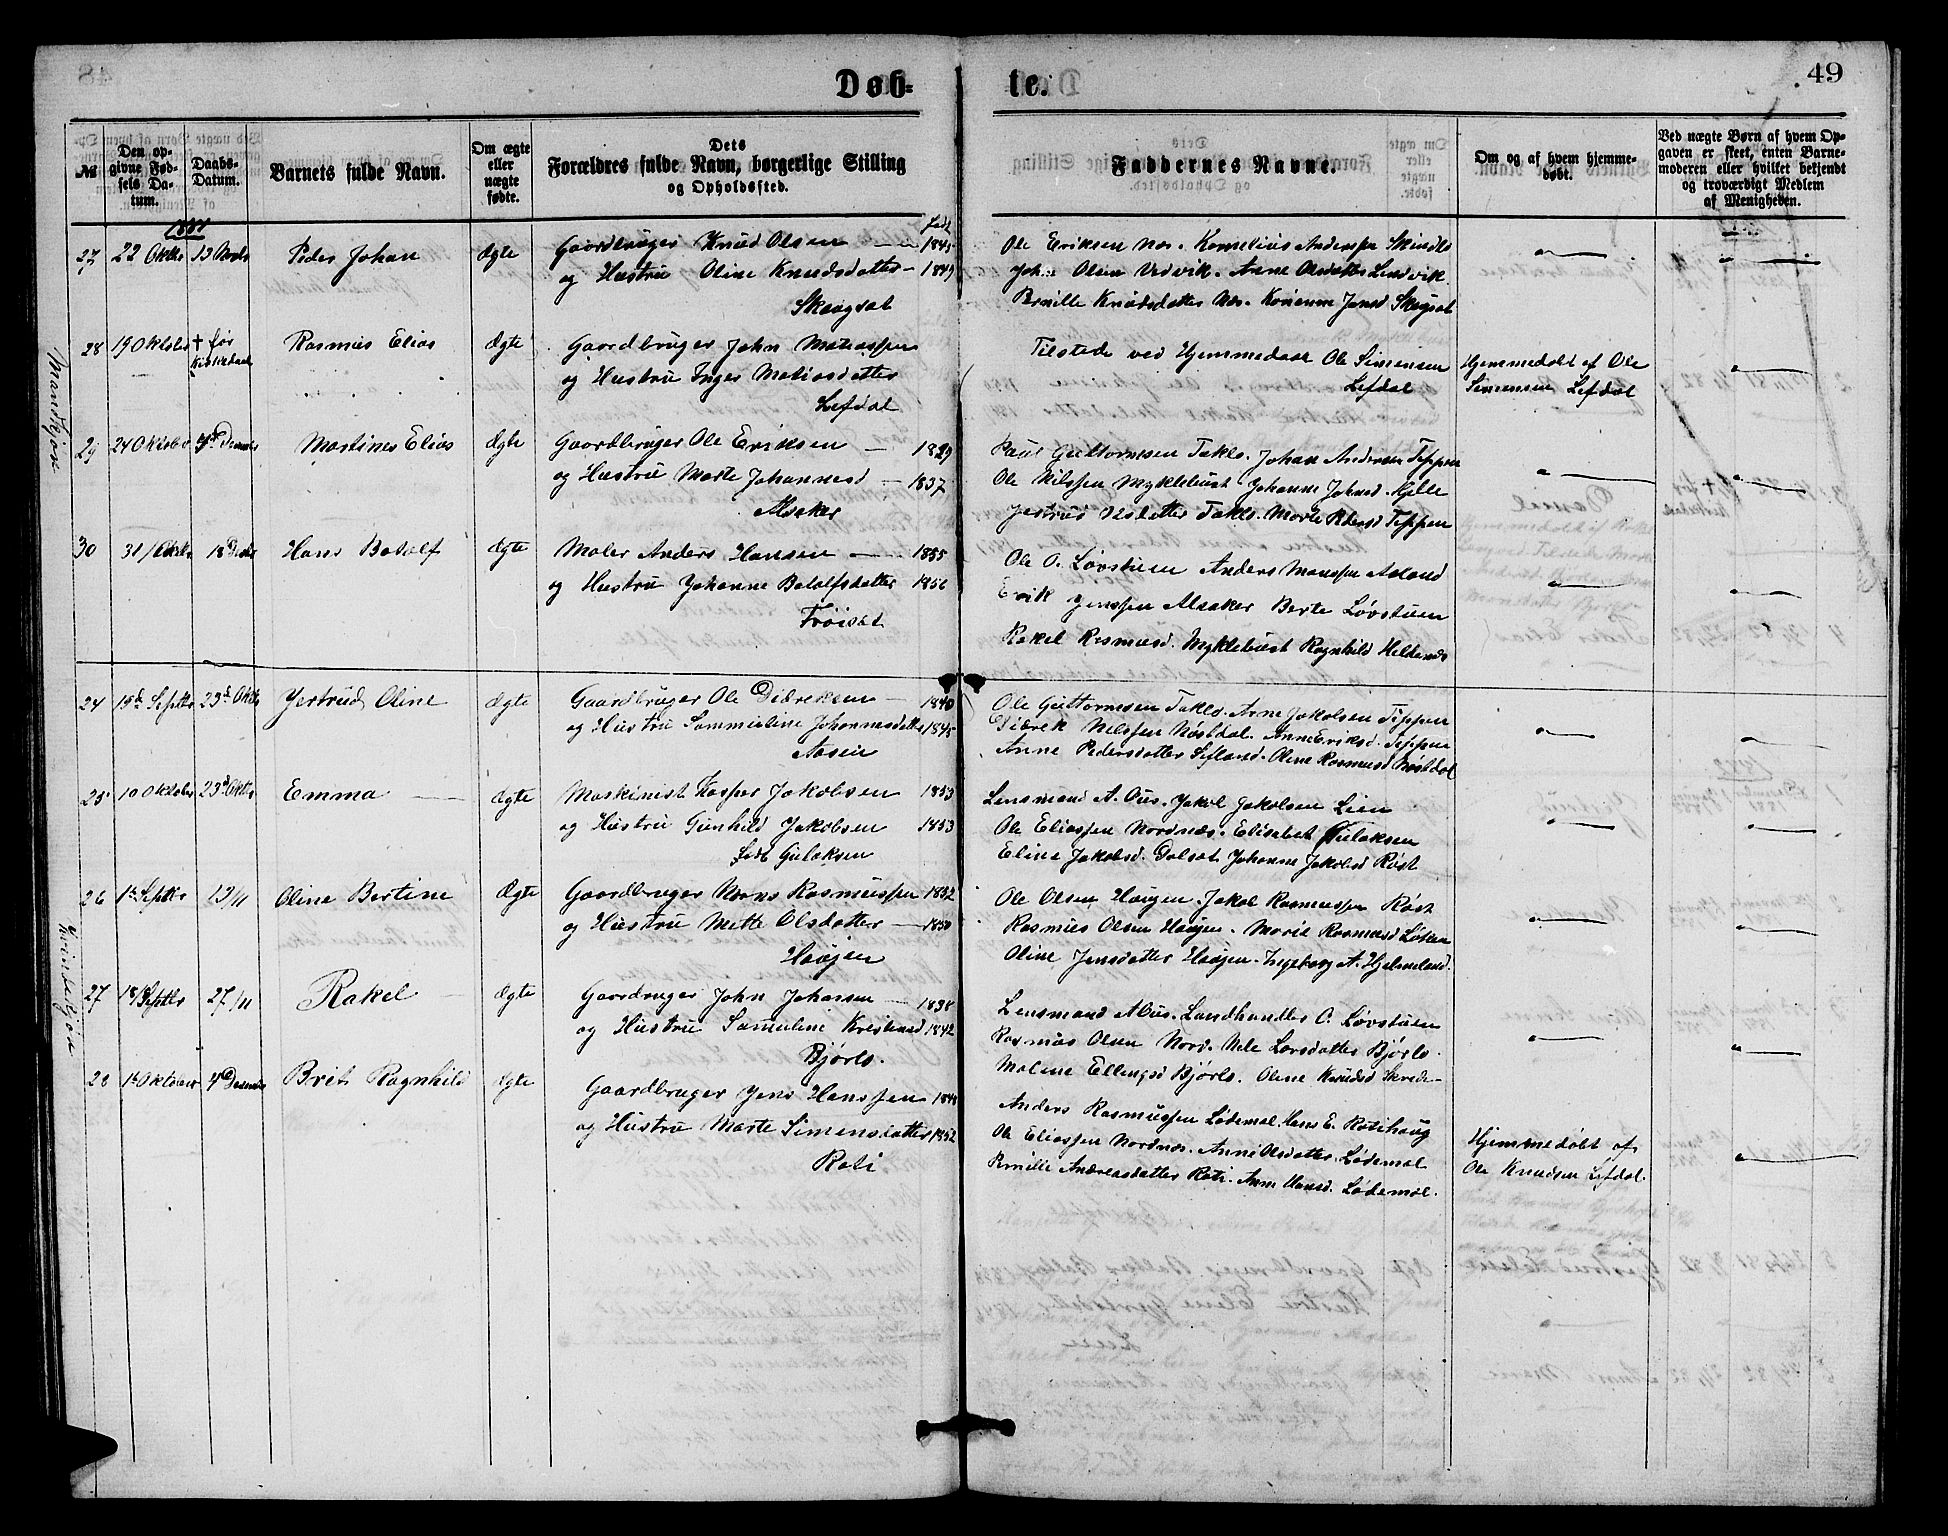 Døb-
te.
49
№
Den op-
givne Fød-
sels Da-
tum.
Daabs-
Datum.
Barnets fulde Navn.
Om ægte
eller
uægte
fødte.
Dets
Forældres fulde Navn, borgerlige Stilling
og Opholdssted.
Faddernes Navne.
Om og af hvem hjemme-
døbt.
Ved uægte Børn af hvem Op-
gaven er skeet, enten Barne-
moderen eller hvilket betjendt
og troværdigt Medlem
af Menigheden.
1881
Mandkjøn
27 22 Oktbr 13 Novbr Peder Johan Ægte Gaardbruger Knud Olsen — 1845
og Hustru Oline Knudsdatter — 1849
Skaugsat
Ole Eriksen Nos. Kornelius Anderssen
Johan Olsen Vedvik. Anne Olsdatter Lendvik
Pernille Knudsdatter Nos. Jensd Skogsat
28 19 Oktober † før Kirkedaab Rasmus Elias Ægte Gaardbruger John Matiassen
og Hustru Inger Matiasdatter
Lefdal
Tilstede ved Hjemmedaab Ole Simensen
Lefdal
Hjemmedøbt af Ole
Simensen Lefdal
29 24 Oktober 4de Decemb Martines Elias Ægte Gaardbruger Ole Eriksen — 1829
og Hustru Marte Johannesd — 1837
Alsaker
Paul Guttormsen Taklo. Johan Andersen Teppen
Ole Nilssen Myklebust Johanne Johnsd. Hjelle
Jertrud Olsdatter Taklo. Marte Pedersd Teppen
30 31/ Oktbr 18 Decbr Hans Botolf Ægte Maler Anders Hansen — 1855
og Hustru Johanne Botolfsdatter 1856
Frøisat
Ole O. Løvstuen Anders Monssen Aaland
Erik Jenssen Alsaker Berte Løvstuen
Rakel Rasmusd. Myklebust Ragnhild Heldenes
Kvindekjøn
24 19de Septbr 23d Oktbr Jertrud Oline ægte Gaardbruger Ole Didreksen — 1840
og Hustru Sammueline Johannesdatter 1845
Aasen
Ole Guttormsen Taklo. Arne Jakobsen Teppen
Didrek Nilssen Nøstdal. Anne Eriksd. Teppen
Anne Pedersdatter Lefland. Oline Rasmusd Nøstdal
25 10 Oktober 23d Oktbr Emma — Ægte Maskinist Kasper Jakobsen 1853
og Hustru Gunhild Jakobsen 1853
født Gulaksen
Lensmand A. Ous. Jakob Jakobsen Lien
Ole Eliassen Nordnæs. Elisabet Gulaksen
Eline Jakobsd. Dalsat Johanne Jakobsd Røst
26 1te Septbr 13/11 Oline Bertine Ægte Gaardbruger Mons Rasmussen 1832
og Hustru Mette Olsdatter — 1850
Haugen
Ole Olsen Haugen. Jakob Rasmussen Røst
Rasmus Olsen Haugen. Marie Rasmusd Løken
Oline Jensdatter Haugen. Ingeborg A. Hjelmeland.
27 18/ Septbr 27/11 Rakel — ægte Gaardruger John Johansen — 1838
og Hustru Samueline Kristensd 1842
Bjørlo.
Lensmand A Ous. Landhandler O. Løvstuen
Rasmus Olsen Nord. Nele Larsdatter Bjørlo.
Malene Ellingsd Bjørlo. Oline Knudsd Skrede
28 1te Oktober 4de Decemb Brit Ragnhild ægte Gaardbruger Jens Hanssen 1848
og Hustru Marte Simensdatter 1852
Roti
Anders Rasmussen Lødemel. Hans E. Rotihaug
Ole Eliassen Nordnes. Anne Olsdatter Lødemel
Pernille Andreasdatter Roti. Anne Hansd. Lødemel.
Hjemmedøbt af
Ole Knudsen Lefdal.